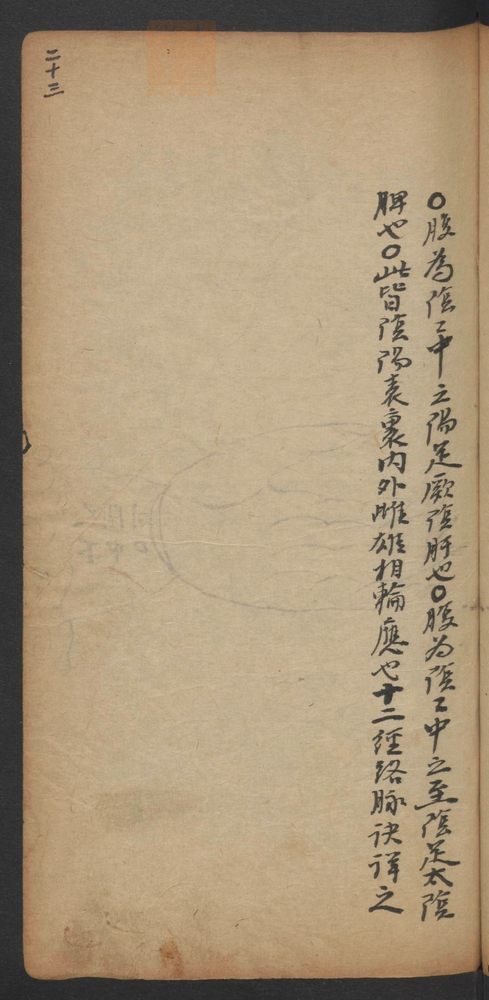 〇腹為陰〻中之陽足厥陰肝也〇腹为陰〻中之至陰足太陰
脾也〇此皆陰陽表裏内外雌雄相輪應也十二経絡脉诀详之
二十三